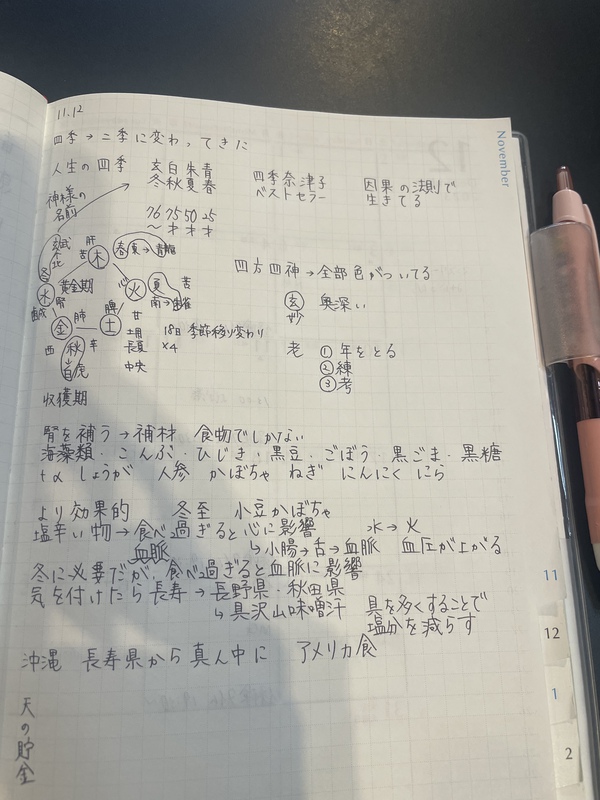 11.12
四季→二季に変わってきた
人生の四季 玄白朱青
冬秋夏春
四季奈津子
ベストセラー
因果の法則で
生きてる
神様の
名前
76 75 50 25
〜 才 才 才
玄武
北
冬
水
腎
鹹
黄金期
肝
木
春 東→青龍
心
火
夏 苦
南→朱雀
肺
金
脾
土
甘
土用 18日 季節移り変わり
長夏 ×4
中央
西 秋 辛
↓
白虎
収穫期
四方四神→全部色がついてる
玄 奥深い
妙
老 ①年をとる
②練
③考
腎を補う→補材 食物でしかない
海藻類・こんぶ・ひじき・黒豆・ごぼう・黒ごま・黒糖
+α しょうが 人参 かぼちゃ ねぎ にんにく にら
より効果的 冬至 小豆かぼちゃ
塩辛い物→食べ過ぎると心に影響 水→火
血脈 ↳小腸→舌→血脈 血圧が上がる
冬に必要だが、食べ過ぎると血脈に影響
気を付けたら長寿→長野県・秋田県
↳具沢山味噌汁 具を多くすることで
塩分を減らす
沖縄 長寿県から真ん中に アメリカ食
天の貯金
November
11
12
1
2